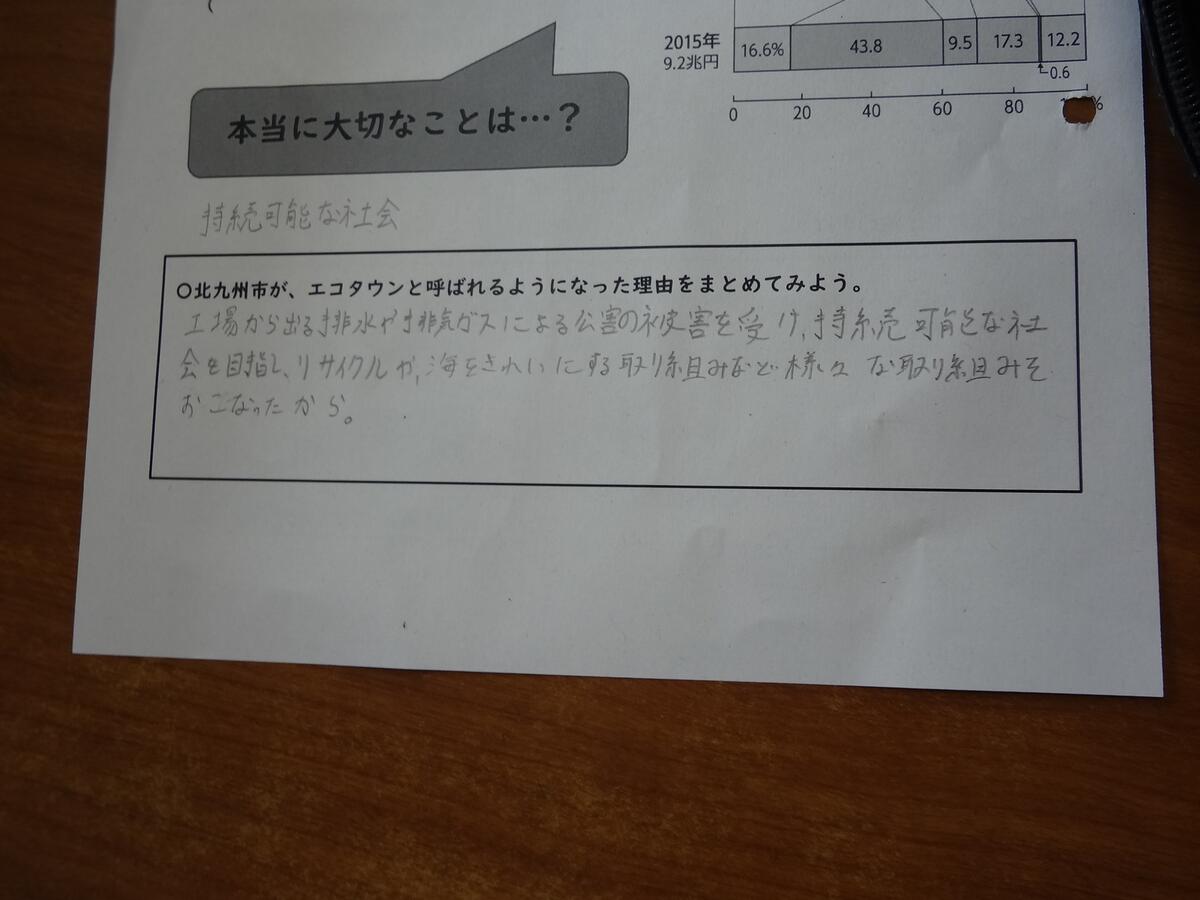 2015年
9.2兆円
16.6% 43.8 9.5 17.3 12.2
0.6
0 20 40 60 80 %
本当に大切なことは…?
持続可能な社会
○北九州市が、エコタウンと呼ばれるようになった理由をまとめてみよう。
工場から出る排水や排気ガスによる公害の被害を受け、持続可能な社
会を目指し、リサイクルや、海をきれいにする取り組みなど様々な取り組みを
おこなったから。